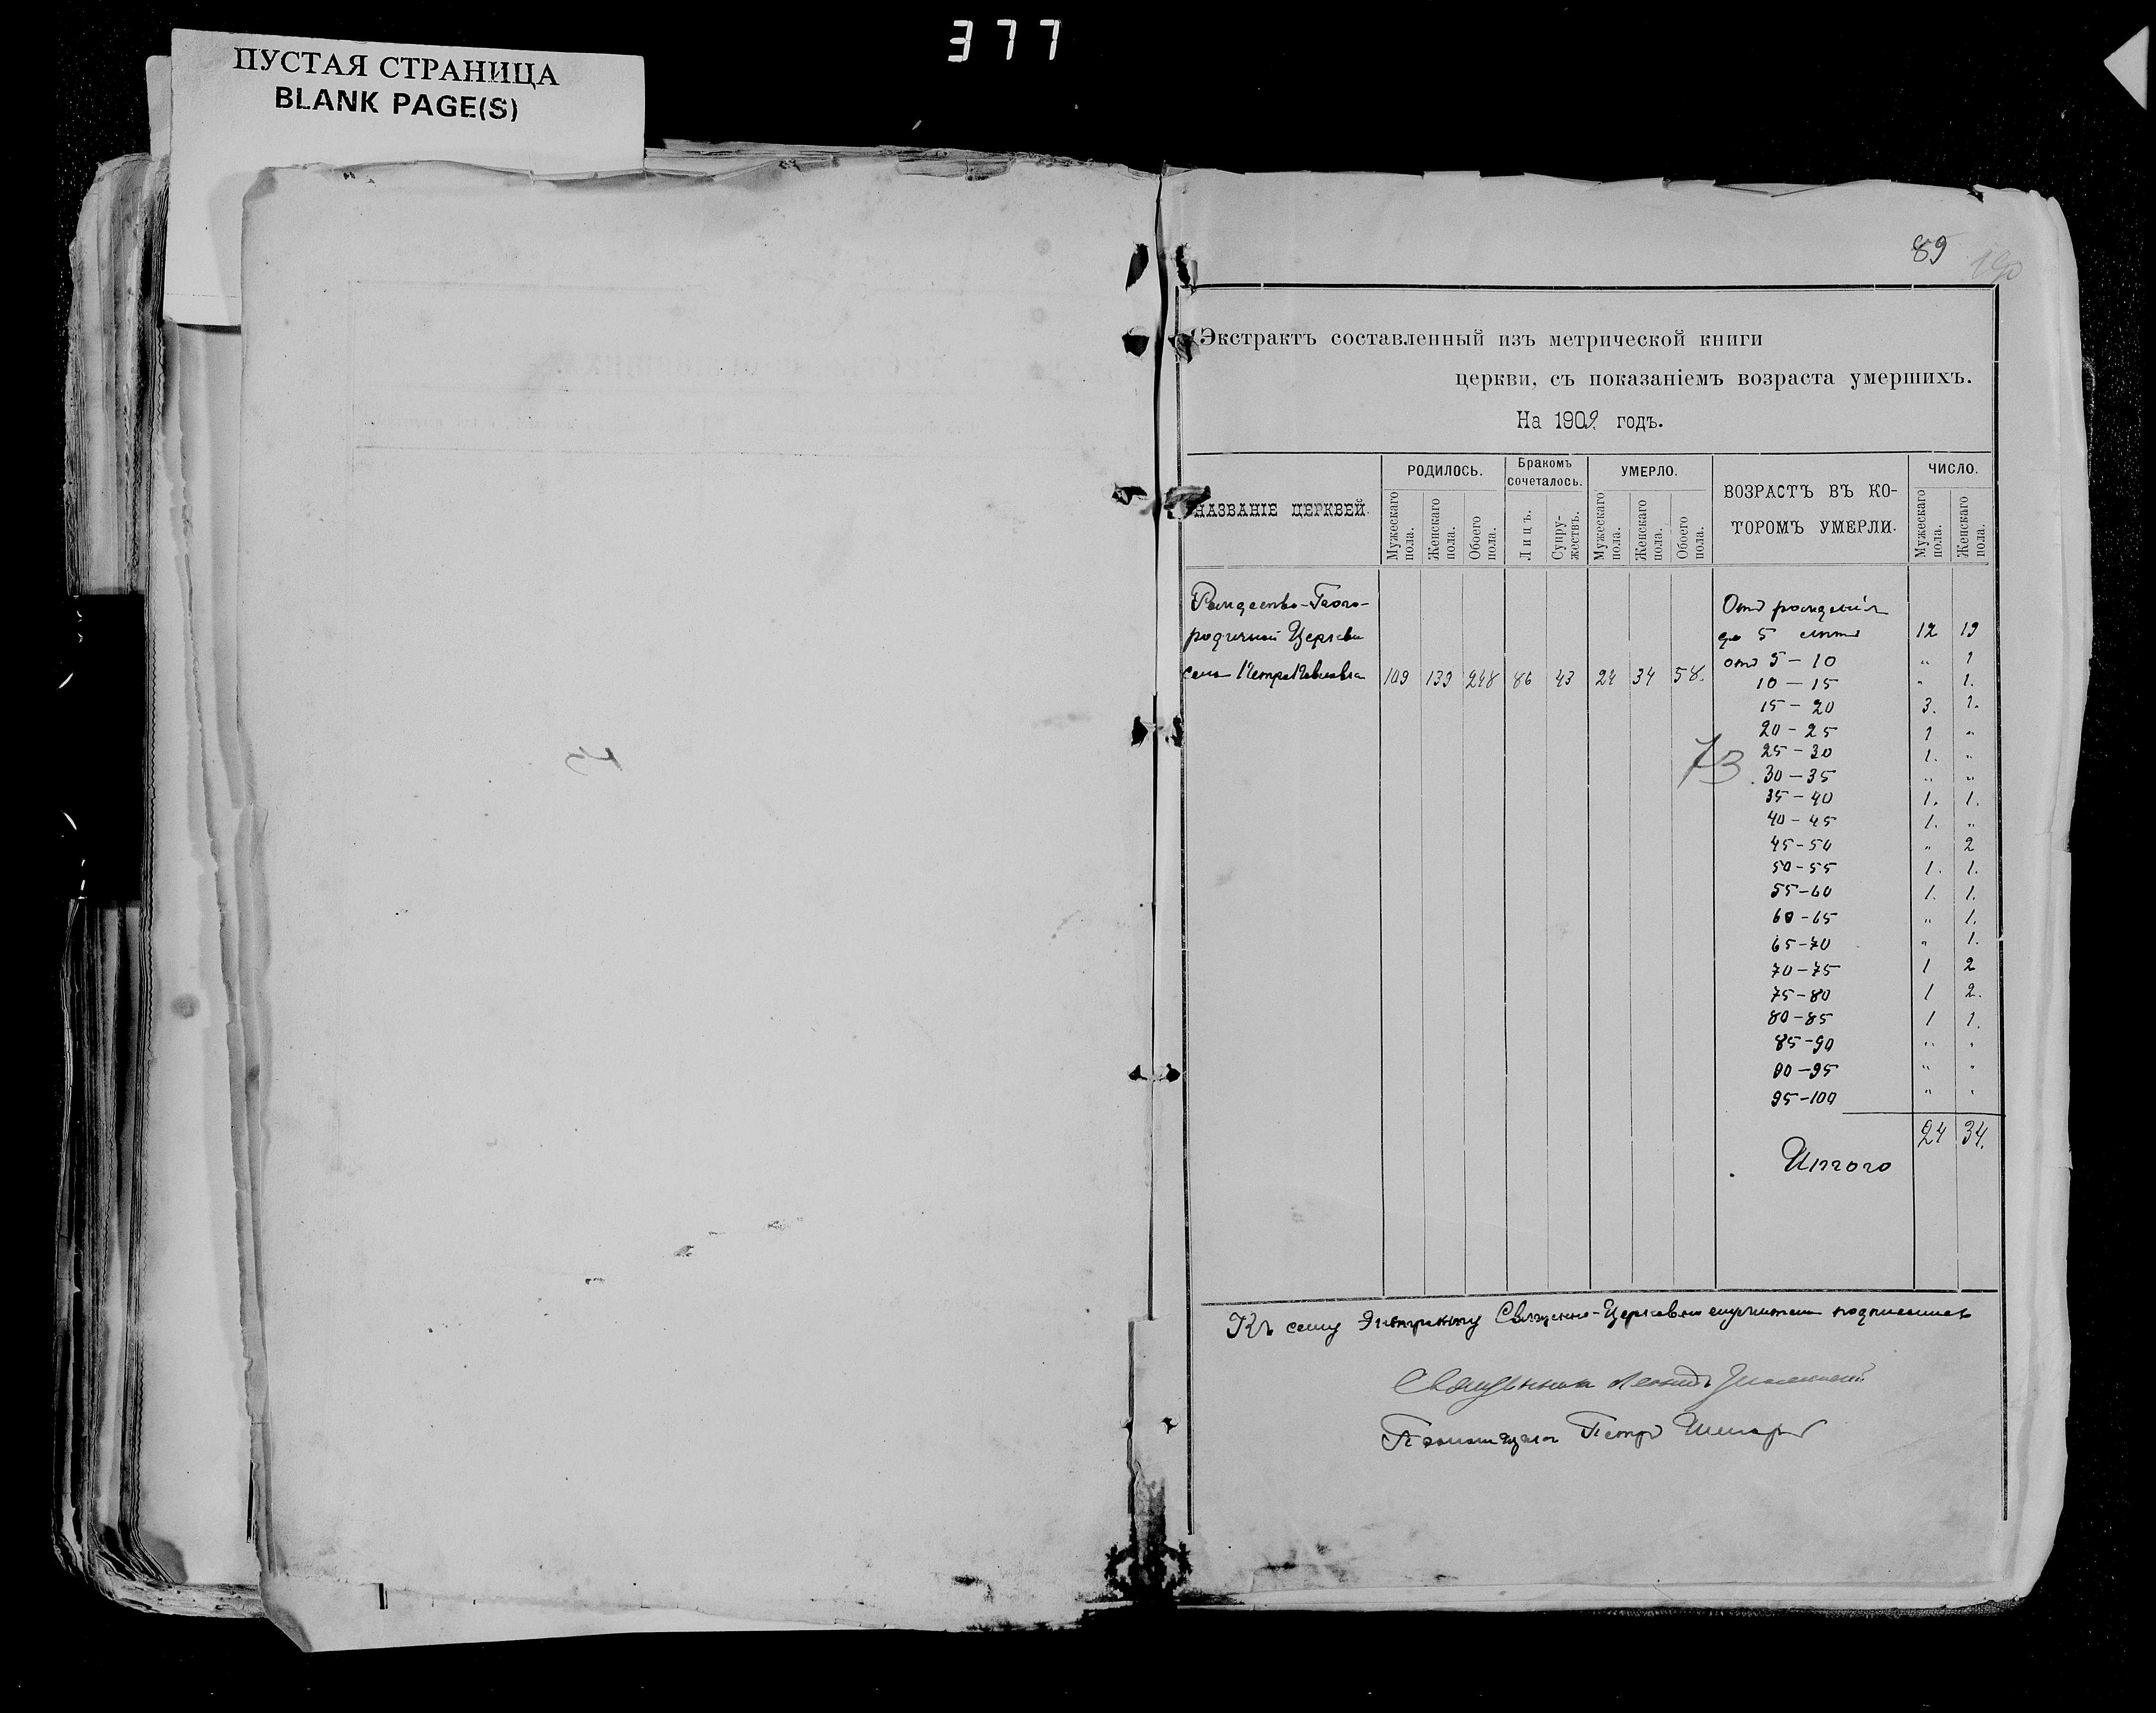 377
ПУСТАЯ СТРАНИЦА
BLANK PAGE(S)
89
190
Экстрактъ составленный изъ метрической книги
церкви, съ показаніемъ возраста умершихъ.
На 1909 годъ.
НАЗВАНІЕ ЦЕРКВЕЙ.
РОДИЛОСЬ.
Мужескаго пола.
Женскаго пола.
Обоего пола.
Бракомъ сочеталось.
Лицъ.
Супружествъ.
УМЕРЛО.
Мужескаго пола.
Женскаго пола.
Обоего пола.
ВОЗРАСТЪ ВЪ КО-
ТОРОМЪ УМЕРЛИ.
ЧИСЛО.
Мужескаго пола.
Женскаго пола.
Рождество-Бого-
родичной Церкви
села ПетроПавловка 109 139 248 86 43 24 34 58.
Отъ рожденія
до 5 лѣтъ 12 19
отъ 5-10 " 1
10-15 " 1.
15-20 3. 1.
20-25 1 "
25-30 1. "
73
30-35 " "
35-40 1. 1.
40-45 1. "
45-50 " 2
50-55 1. 1.
55-60 1. 1.
60-65 " 1.
65-70 " 1.
70-75 1 2
75-80 1 2.
80-85 1 1.
85-90 " "
90-95 " "
95-100 " "
24 34.
Итого
Къ сему Экстракту Священно-Церковно служители подписались
Священникъ Леонидъ
Псаломщикъ Петръ